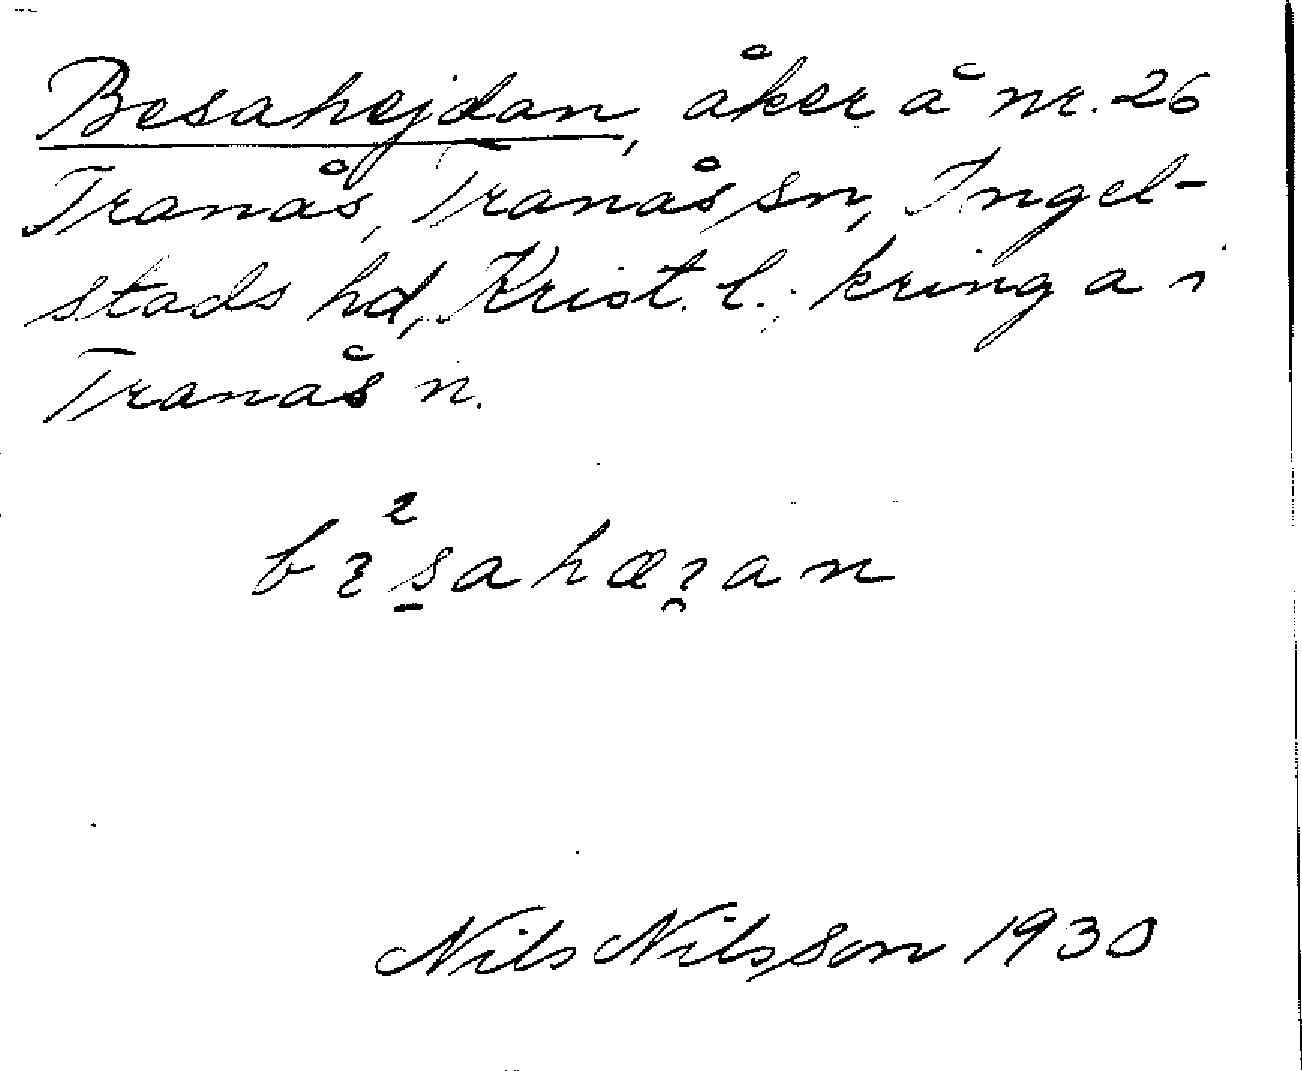 Besahejdan, åker å nr. 26
Tranås, Tranås sn, Ingel-
stads hd, Krist. l.; kringa i
Tranås n.
Nils Nilsson 1930